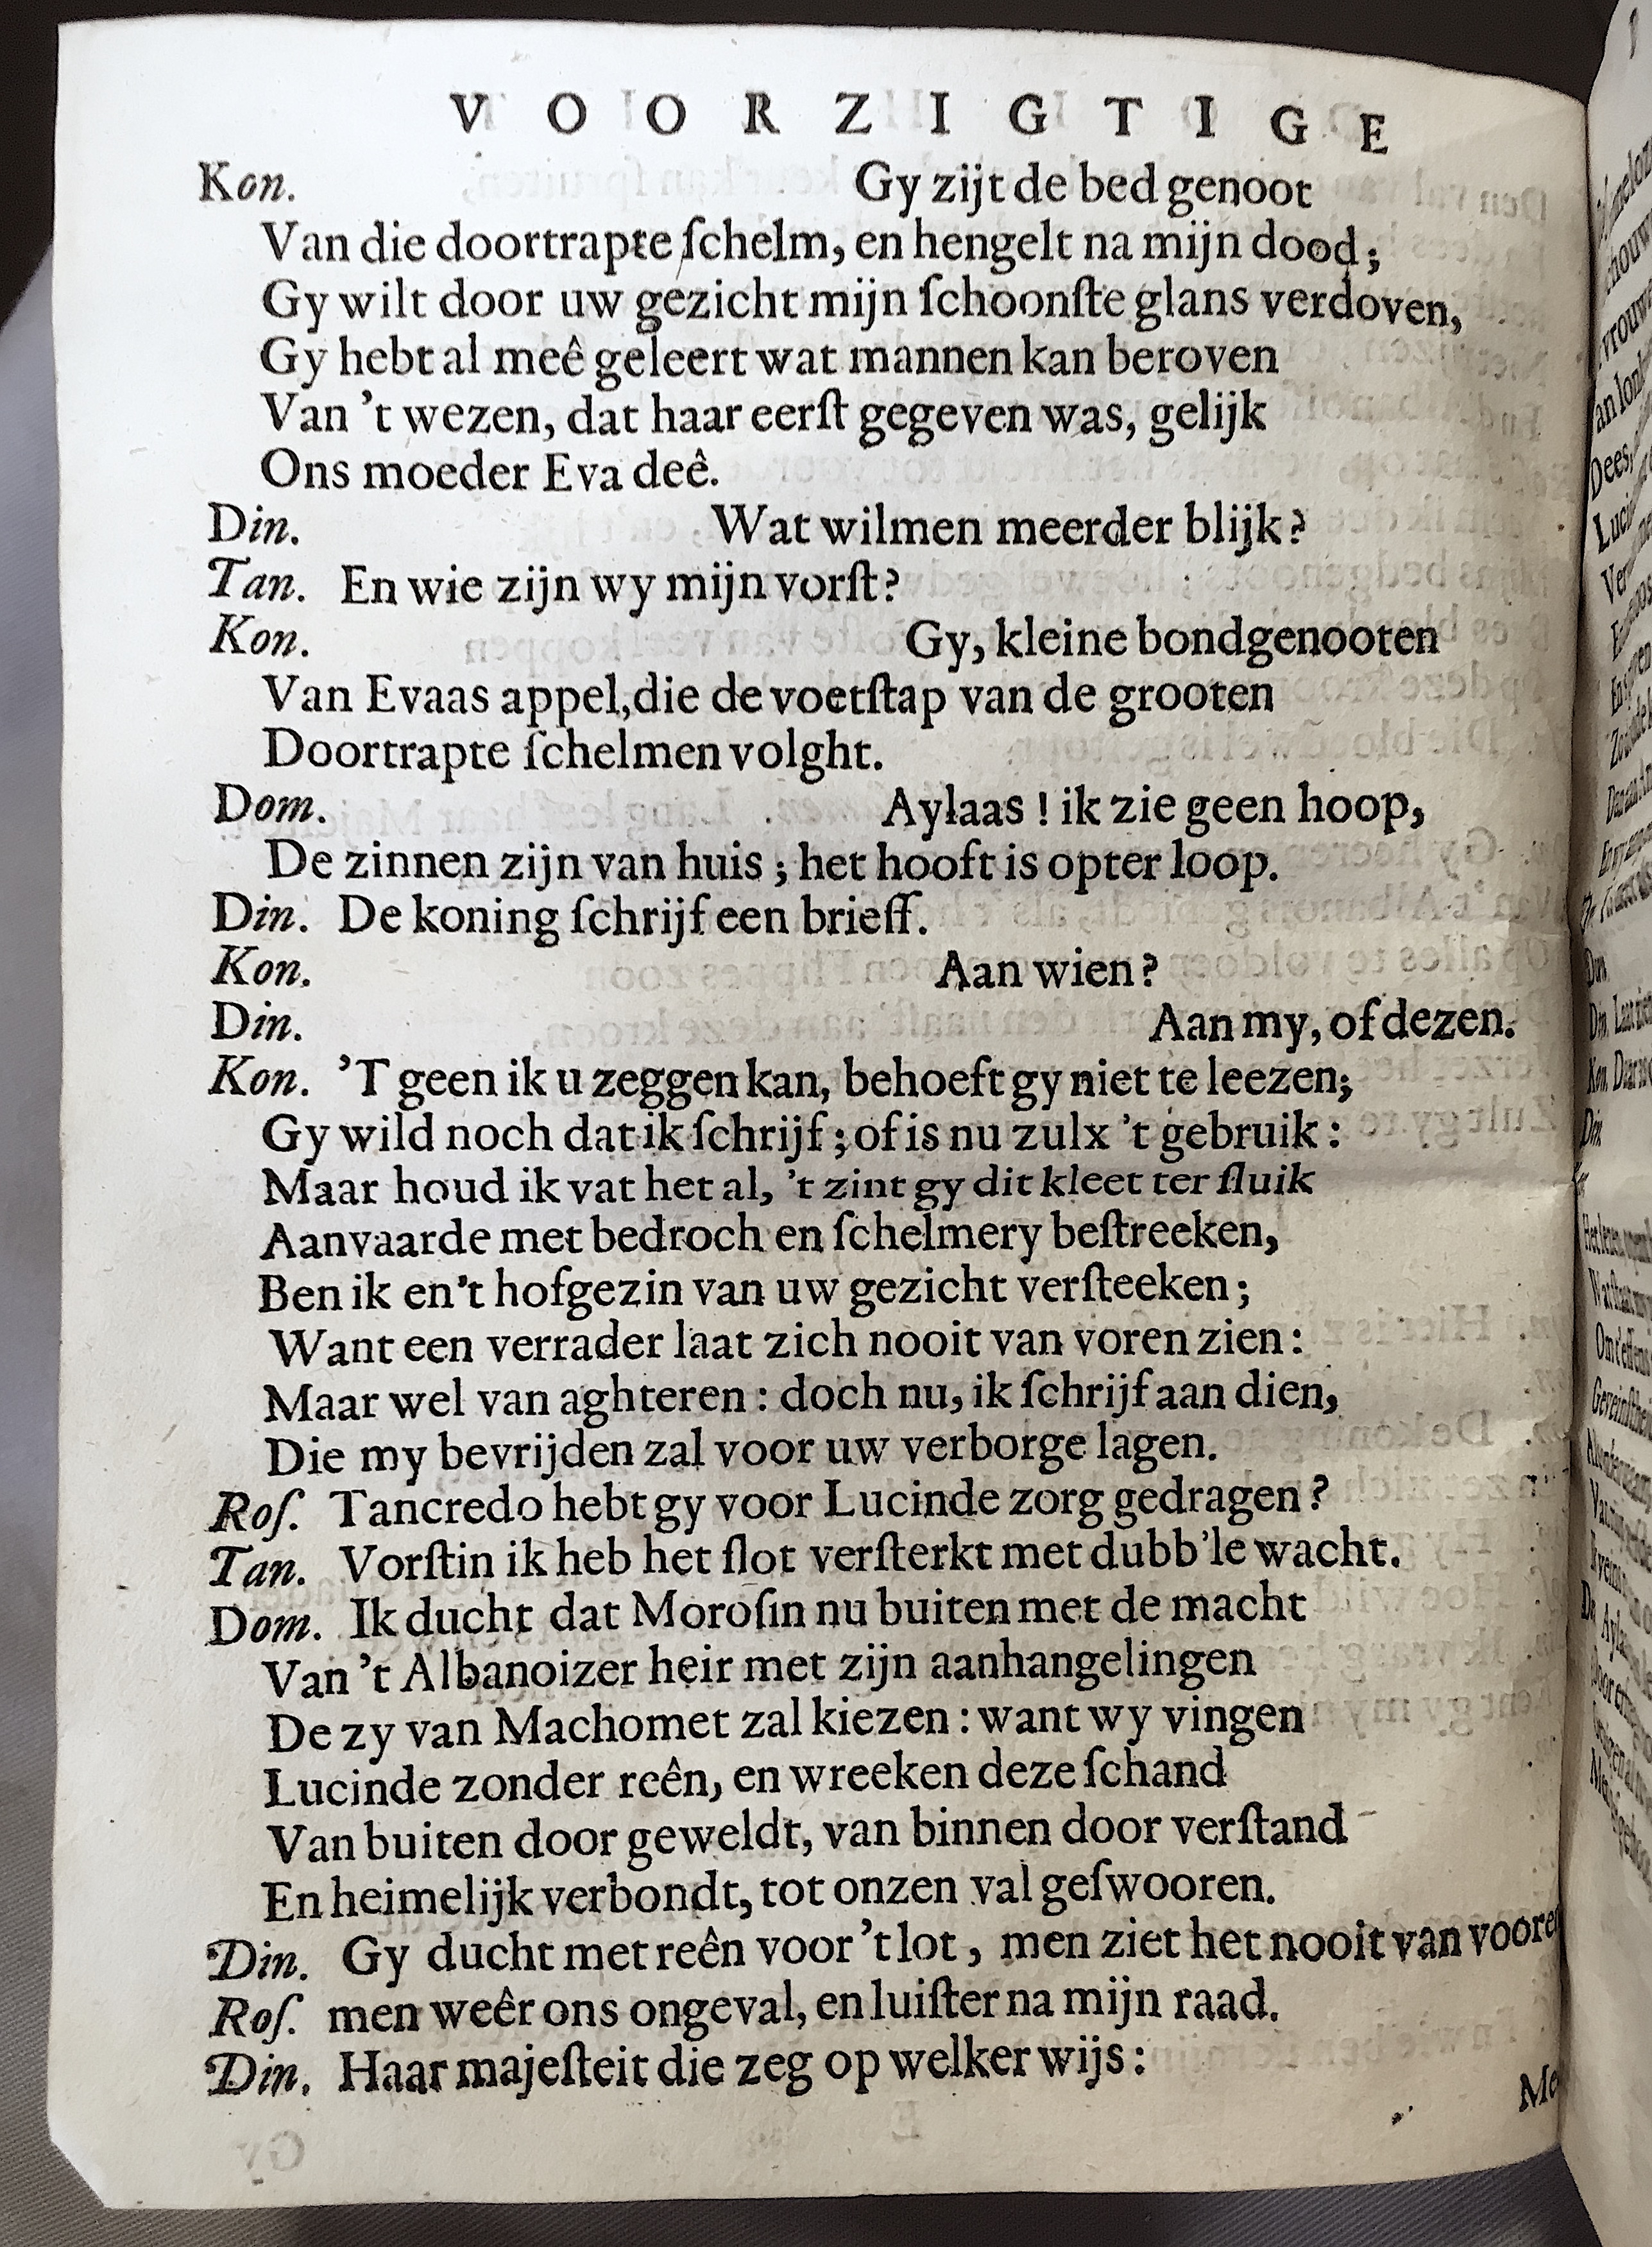 V O O R Z I G T I G E
Kon. Gy zijt de bed genoot
Van die doortrapte ſchelm, en hengelt na mijn dood;
Gy wilt door uw gezicht mijn ſchoonſte glans verdoven,
Gy hebt al meê geleert wat mannen kan beroven
Van 't wezen, dat haar eerſt gegeven was, gelijk
Ons moeder Eva deê.
Din. Wat wilmen meerder blijk?
Tan. En wie zijn wy mijn vorſt?
Kon. Gy, kleine bondgenooten
Van Evaas appel, die de voetſtap van de grooten
Doortrapte ſchelmen volght.
Dom. Aylaas ! ik zie geen hoop,
De zinnen zijn van huis ; het hooft is opter loop.
Din. De koning ſchrijf een brieff.
Kon. Aan wien?
Din. Aan my, of dezen.
Kon. 'T geen ik u zeggen kan, behoeft gy niet te leezen;
Gy wild noch dat ik ſchrijf ; of is nu zulx 't gebruik :
Maar houd ik vat het al, 't zint gy dit kleet ter ſluik
Aanvaarde met bedroch en ſchelmery beſtreeken,
Ben ik en't hofgezin van uw gezicht verſteeken ;
Want een verrader laat zich nooit van voren zien :
Maar wel van aghteren : doch nu, ik ſchrijf aan dien,
Die my bevrijden zal voor uw verborge lagen.
Roſ. Tancredo hebt gy voor Lucinde zorg gedragen ?
Tan. Vorſtin ik heb het ſlot verſterkt met dubb'le wacht.
Dom. Ik ducht dat Moroſin nu buiten met de macht
Van 't Albanoizer heir met zijn aanhangelingen
De zy van Machomet zal kiezen : want wy vingen
Lucinde zonder reên, en wreeken deze ſchand
Van buiten door geweldt, van binnen door verſtand
En heimelijk verbondt, tot onzen val geſwooren.
Din. Gy ducht met reên voor 't lot, men ziet het nooit van voore
Roſ. men weêr ons ongeval, en luiſter na mijn raad.
Din. Haar majeſteit die zeg op welker wijs :
Me